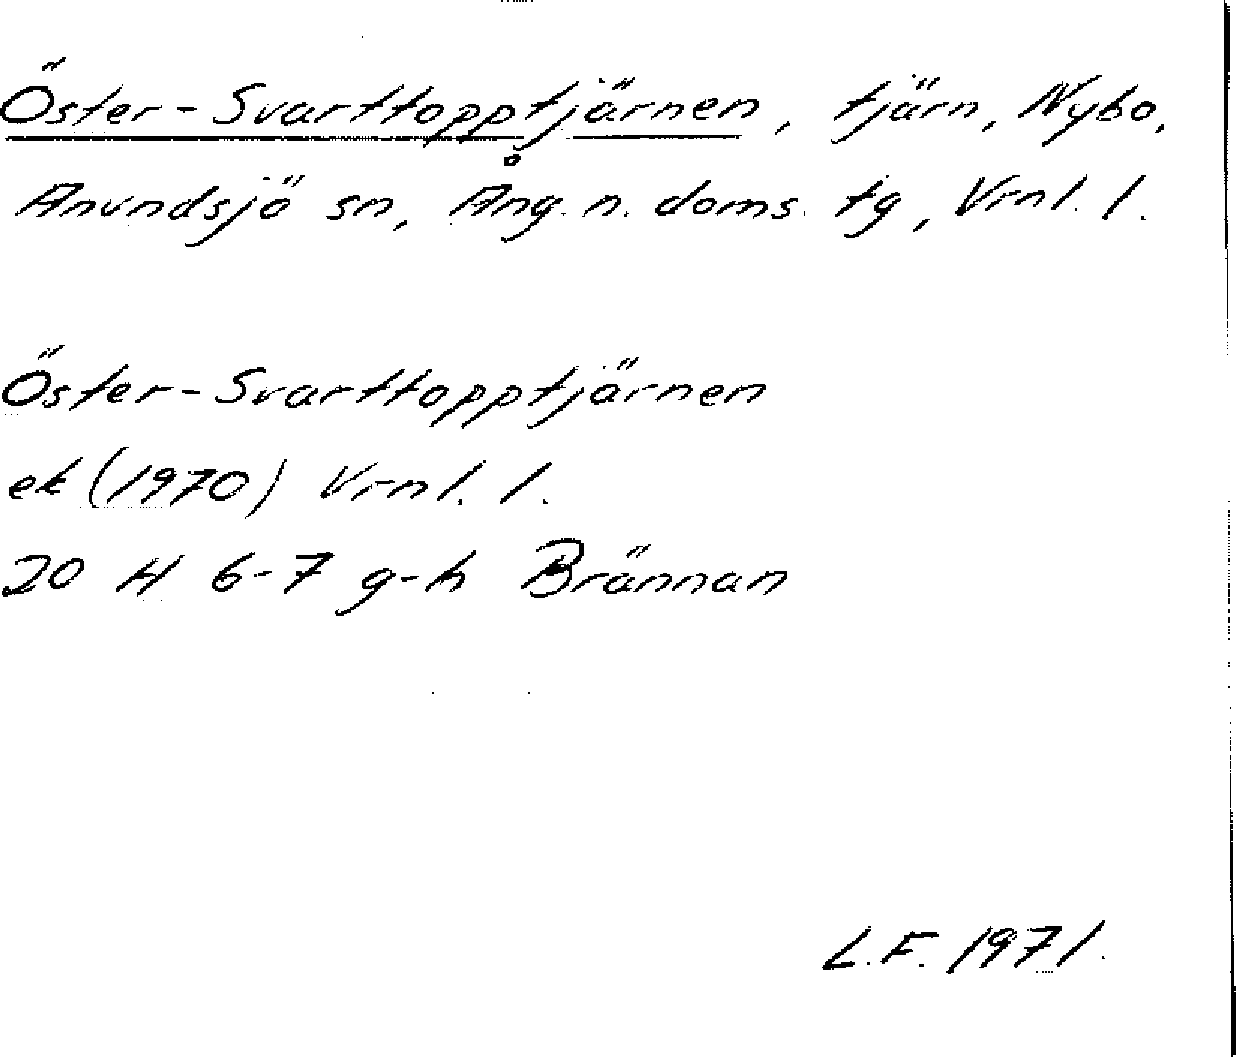 Öster-Svarttopptjärnen, tjärn, Nybo,
Anundsjö sn, Ång. n. doms. tg, Vrnl. l.
Öster-Svarttopptjärnen
ek (1970) Vrnl. l.
20 H 6-7 g-h Brännan
L.F. 1971.